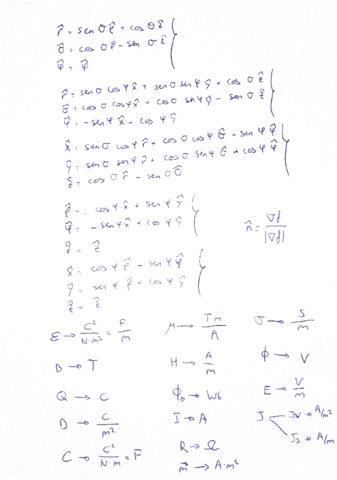 r̂ = senθ ρ̂ + cosθ ẑ
θ̂ = cosθ ρ̂ - senθ ẑ
φ̂ = φ̂
r̂ = senθ cosφ x̂ + senθ senφ ŷ + cosθ ẑ
θ̂ = cosθ cosφ x̂ + cosθ senφ ŷ - senθ ẑ
φ̂ = -senφ x̂ + cosφ ŷ
x̂ = senθ cosφ r̂ + cosθ cosφ θ̂ - senφ φ̂
ŷ = senθ senφ r̂ + cosθ senφ θ̂ + cosφ φ̂
ẑ = cosθ r̂ - senθ θ̂
ρ̂ = cosφ x̂ + senφ ŷ
φ̂ = -senφ x̂ + cosφ ŷ
ẑ = ẑ
n̂ = ∇f / |∇f|
x̂ = cosφ ρ̂ - senφ φ̂
ŷ = senφ ρ̂ + cosφ φ̂
ẑ = ẑ
ε → C²/N·m² = F/m
μ → Tm/A
σ → S/m
B → T
H → A/m
ϕ → V
Q → C
Φ₀ → Wb
E → V/m
D → C/m²
I → A
J → Jv → A/m²
Js → A/m
C → C²/N·m = F
R → Ω
m⃗ → A·m²